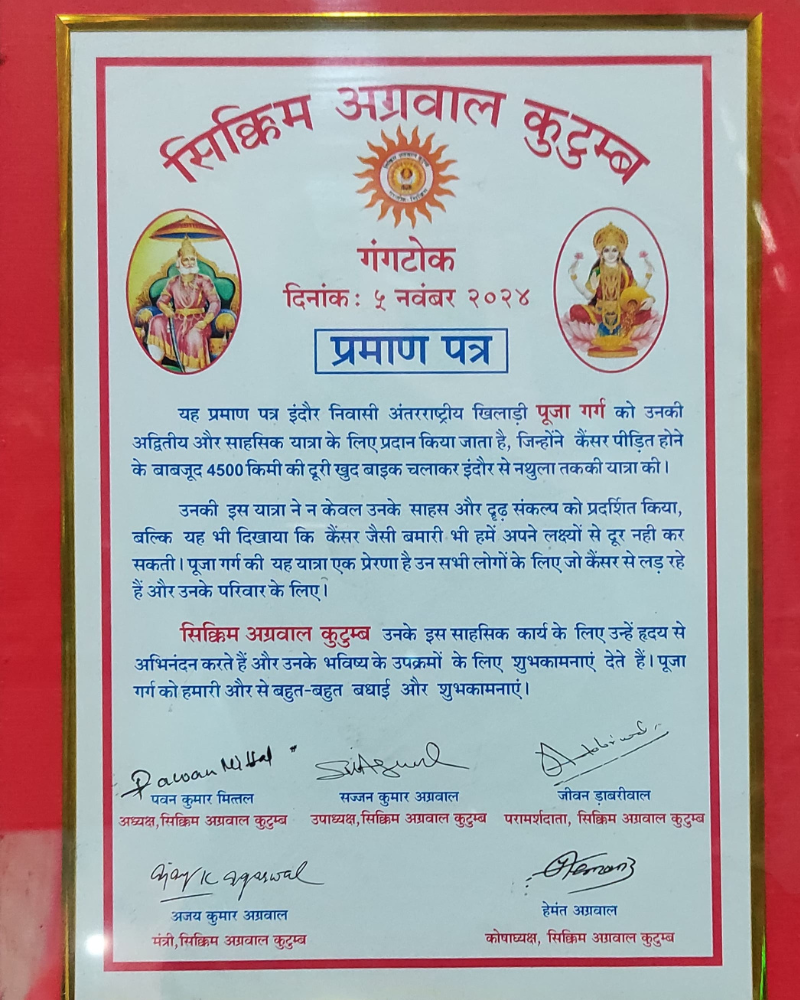 सिक्किम अग्रवाल कुटुम्ब
गंगटोक
दिनांक: ५ नवंबर २०२४
प्रमाण पत्र
यह प्रमाण पत्र इंदौर निवासी अंतरराष्ट्रीय खिलाड़ी पूजा गर्ग को उनकी
अद्वितीय और साहसिक यात्रा के लिए प्रदान किया जाता है, जिन्होंने कैंसर पीड़ित होने
के बाबजूद 4500 किमी की दूरी खुद बाइक चलाकर इंदौर से नथुला तककी यात्रा की।
उनकी इस यात्रा ने न केवल उनके साहस और दृढ़ संकल्प को प्रदर्शित किया,
बल्कि यह भी दिखाया कि कैंसर जैसी बमारी भी हमें अपने लक्ष्यों से दूर नही कर
सकती। पूजा गर्ग की यह यात्रा एक प्रेरणा है उन सभी लोगों के लिए जो कैंसर से लड़ रहे
हैं और उनके परिवार के लिए।
सिक्किम अग्रवाल कुटुम्ब उनके इस साहसिक कार्य के लिए उन्हें हृदय से
अभिनंदन करते हैं और उनके भविष्य के उपक्रमों के लिए शुभकामनाएं देते हैं। पूजा
गर्ग को हमारी और से बहुत-बहुत बधाई और शुभकामनाएं।
Pawan Mittal
पवन कुमार मित्तल
अध्यक्ष,सिक्किम अग्रवाल कुटुम्ब
सज्जन कुमार अग्रवाल
उपाध्यक्ष,सिक्किम अग्रवाल कुटुम्ब
जीवन ड़ाबरीवाल
परामर्शदाता, सिक्किम अग्रवाल कुटुम्ब
Ajay K Agarwal
अजय कुमार अग्रवाल
मंत्री,सिक्किम अग्रवाल कुटुम्ब
हेमंत अग्रवाल
कोषाध्यक्ष, सिक्किम अग्रवाल कुटुम्ब